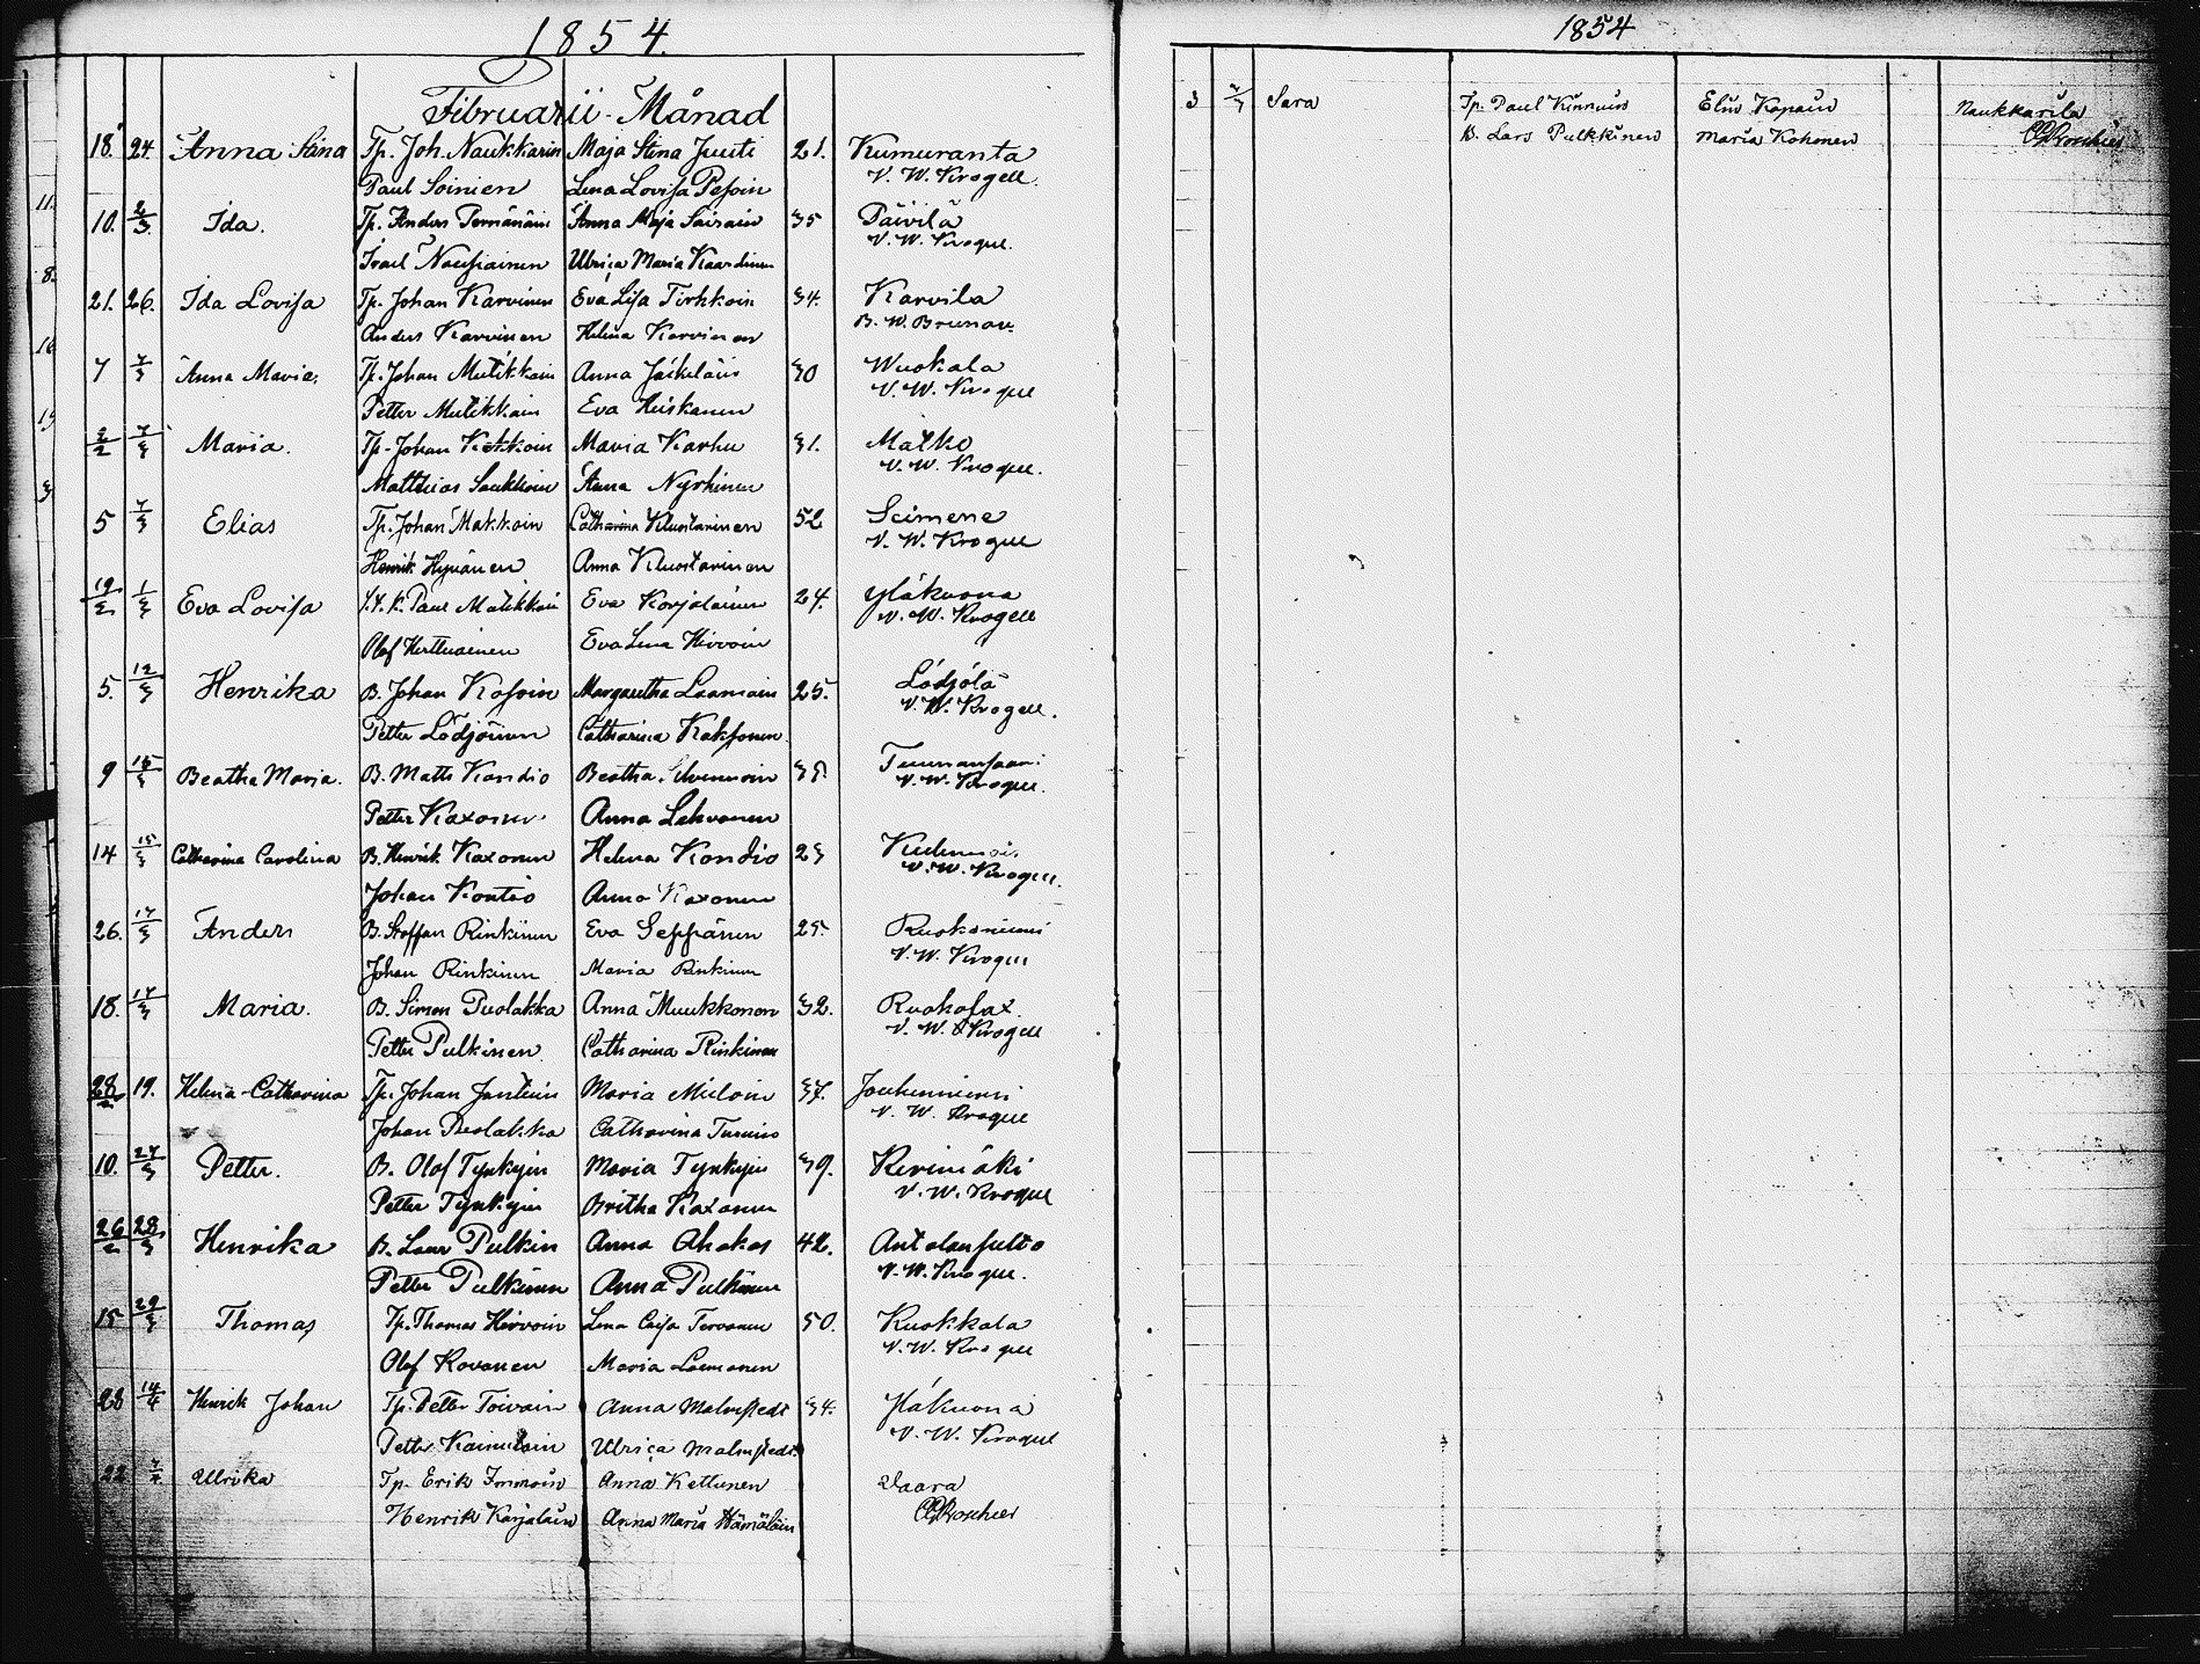 1854.
Februarii Månad
18. 24. Anna Stina Tp. Joh. Naukkarin Maja Stina Juuti 21. Kumuranta
Paul Soinien Lena Lovisa Pesoin V. W. Krogell.
11.
10. 2/3. Ida. Tp. Anders Pernänäin Anna Maja Sairain 35 Päivilä
V. W. Krogell.
Israel Nousiainen Ulrica Maria Kaardinen
8.
21. 26. Ida Lovisa Tp. Johan Karvinen Eva Lisa Tirhkoin 34. Karvila
Anders Karvinen Helena Karvinen B. W. Brunou
16
7 7/3 Anna Maria. Tp. Johan Mutikkain Anna Jäikäläin 30 Wuokala
V. W. Krogell
Petter Mutikkain Eva Heiskanen
15
2/2 7/3 Maria. Tp. Johan Kokkoin Maria Karhu 31. Matko
V. W. Krogell.
Matthias Saukkoin Anna Nyrhinen
3
5 7/3 Elias Tp. Johan Makkoin Catharina Kluostarinen 52 Seimene
V. W. Krogell
Henrik Hyvänen Anna Kluostarinen
19/2 1/3 Eva Lovisa Paul Mutikkain Eva Karjalainen 24. Yläkuona
V. W. Krogell
Olof Herttuainen Eva Lena Hirvoin
5. 12/3 Henrika B. Johan Kosoin Margaretha Laamain 25. Lödjölä
V. W. Krogell.
Petter Lödjönen Catharina Kaksonen
9 15/3 Beatha Maria. B. Matts Kondio Beatha Silvennoin Tuunansaari
V. W. Krogell.
Petter Kaxonen Anna Lehvonen
14 15/3 Catharina Carolina B. Henrik Kaxonen Helena Kondio 23
V. W. Krogell.
Johan Kontio Anna Kaxonen
26. 17/3 Anders B. Staffan Rinkinen Eva Seppänen 25. Ruokoniemi
V. W. Krogell
Johan Rinkinen Maria Rinkinen
18. 17/3 Maria. B. Simon Puolakka Anna Muukkonen 32. Ruokolax.
V. W. Krogell
Petter Pulkinen Catharina Rinkinen
28/2 19. Helena Catharina Tp. Johan Jantuin Maria Miiloin 37. Jouhenniemi
V. W. Krogell
Johan Puolakka Catharina Turuin
10. 27/3 Petter. B. Olof Tynkyin Maria Tynkyin 39. Kerimäki
Petter Tynkyin Britha Kaxonen V. W. Krogell
26/2 28/3 Henrika B. Lars Pulkin Anna Ahokas 42. Antolansulto
V. W. Krogell.
Petter Pulkinen Anna Pulkinen
15 29/3 Thomas Tp. Thomas Hirvoin Lena Caisa Tervonen 50. Kuokkala
V. W. Krogell
Olof Kovanen Maria Laemanen
28 14/4 Henrik Johan Tp. Petter Toivain Anna Malmstedt 34. Yläkuona
V. W. Krogell
Petter Kainulain Ulrica Malmstedt
22 7/4 Ulrika Tp. Erik Immoin Anna Kettunen Vaara
Henrik Karjalain Anna Maria Hämäläin
1854
3 7/7 Sara Tp. Paul Kinnuin Elin Kopain Naukkarila
B. Lars Pulkkinen Maria Kohonen